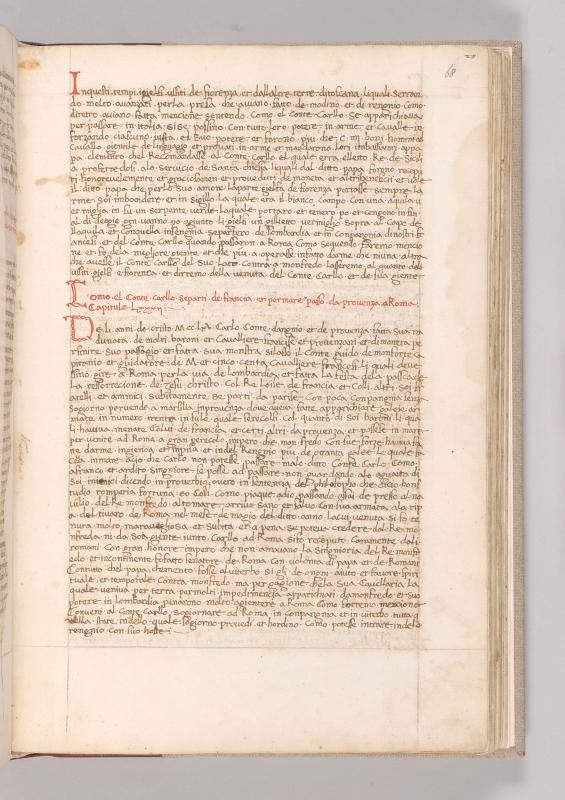 68
In questi tempi i gielfi usciti de fiorenza et dallaltre terre ditoscana liquali seeran
do molto avanzati per la presa che aviano fatto de modina et de rengnio como
dirетro aviano fatta mencione sentendo como el conte Carllo se apparichiava
per passare in italia si se possino con tutto loro potere in arme et cavalle in
forzando ciaschuno justa el suo potere et foreno piu che c m boni homeni a
cavallo gientile de linguagio et provati in arme et mandarono loro imbasciatori a pa
pa clemento chel recomandasse al conte Carllo el quale erra elletto Re de Sicili
a proferendosi alo servicio de Santa chiesa liquali dal ditto papa forno recepu
ti honorevelemente et graciosamen et proveduti de moneta et altri beneficii et volle
il ditto papa che per lo suo amore la parte gielfa de fiorenza portasse sempre la
rme soi imbandere et in sigillo la quale era il bianco campo con una aquila v
et miglia in su un serpente verde laquale portaro et tenero po et tengono in fin
al di de ogie gin vanno po agiunti li gielfi un gilletto vermiglio sopra al capo de
llaquila et con quella insengnia se partero de lombardia et in conpangnia dinostri fr
anciesi et del conte Carllo quando passoron a Roma como sequendo faremo mencio
ne et fo dela megliore giente et che piu a operasse in fatto darme che niuna altra
che avesse il conte Carllo del suo lato contra a monfredo lasseremo al quanto deli
usciti gielfi e fiorenza et dirremo della venuta del conte Carllo et de sua giente
Como el Conte Carllo separti de francia et per mare passo da provenza a Roma
Capitulo Lxxxii
De li anni de cristo Mcclxv Carlo Conte dangiio et de provenza fatta sua ra
dunata de molti baroni et Cavallieri francise et provenzani et di moneta per
furnire suo passagio et fatta sua mostra si lasso il Conte guido de monforte ca
pitanio et guidatore de M et cinco centa Cavallieri francesci li quali deve
ssino gire a Roma per la via de lombardia et fatta la festa dela pascua de
La ressorrecione de Jesu christo Col Re Loise de francia et Colli altri Soi fr
atelli et amici Subitamente se parti da parise Con poca conpangnia senza
Sogiorno pervenne a marsilia in provenza dove avea fatto apparichiare galeie ar
mate in numero trenta in sule quale se recolsi Col quanto di soi baroni li qua
li havia menate Colui de francia et certi altri da provenza et missese in mare
per venire ad Roma a gran pericolo impero che monfredo con sue forze havia fa
ne darme in gienoa et in pisa et in del Rengnio piu de otanta galee le quale fa
cea innare acio che Carlo non potesse passare malo ditto Conte Carlo Como
afranco et ardito Singniore se posse ad passare non guardando alo aguaito de
Soi inimici dicendo in proverbio overo in sentencia del philosopho che dicie bono
studio rompe ria fortuna eo Colli como piaque adio passando assai de presso al na
vilio del Re monfredo al to mare arrivo sano et salvo con sua armata ala rip
a del tivaro de Roma nel mese de magio del ditto anno La cui venuta si fo te
nuta molto maravegliosa et Subita et a pena se poteva credere dal Re mo
nfredo ni da soi giente iunto Carllo ad Roma sifo receputo Caramente dali
romani Con gran honore impero che non amavano la Singnioria del Re monfr
edo et incontinente fo fatto senatore de Roma Con volonta di papa et de Romani
Contutto chel papa chemento fosse a Viterbo Si gli de omni aiuto et favore spiri
tuale et temporale Contra monfredo ma per cagione chela sua Cavallaria la
quale veniva per terra per molti impedimenti apparichiati da monfredo et suo
potere in Lombardia penarono molto a giongere a Roma Como farremo mencione
Convenj al conte Carllo Sogiornare ad Roma in conpangnia et in viterbo tutta q
uella state in dello quale sogiorno provedi et hordino Como potesse intrare indelo
rengnio con suo hoste